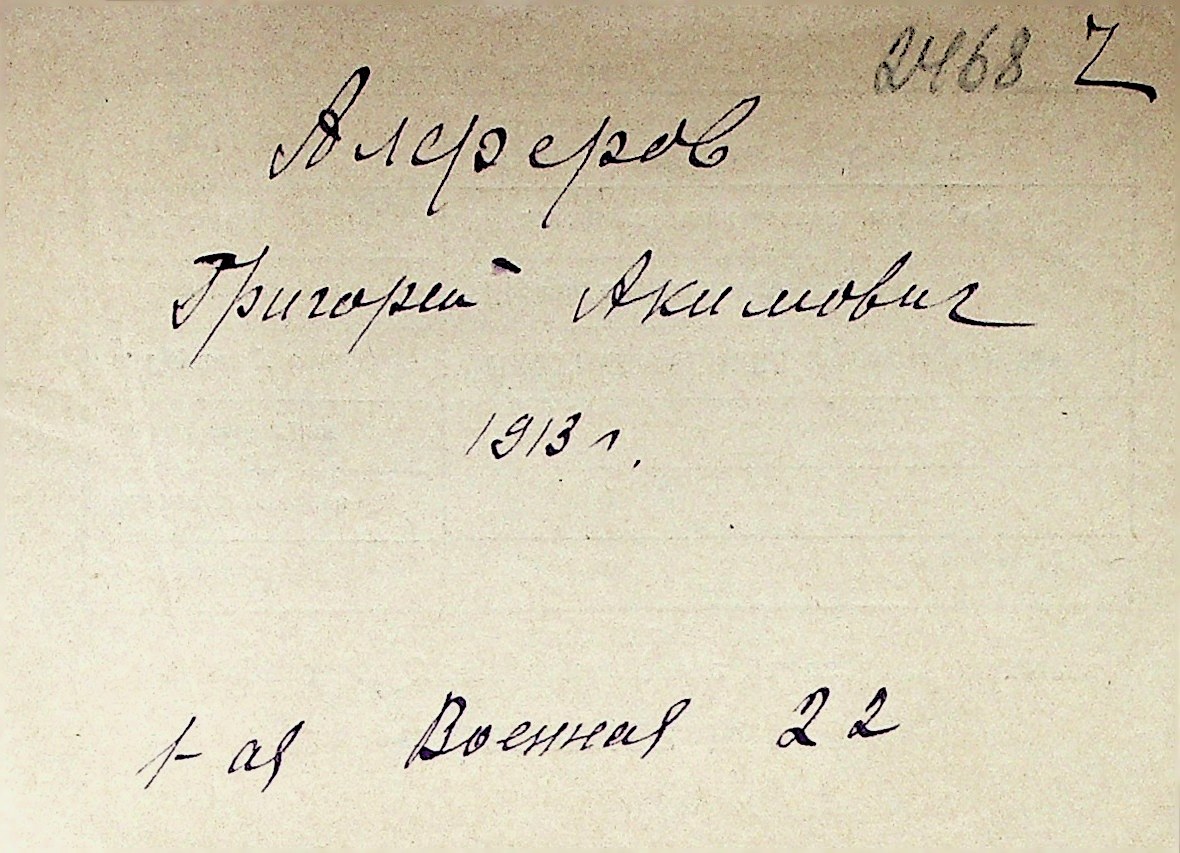 2468 Ч
Алферов
Григорий Акимович
1913 г.
1-ая Военная 22